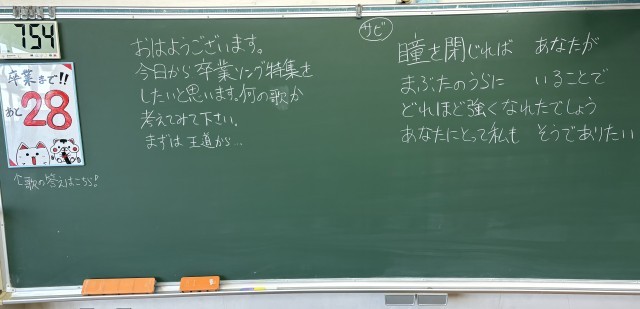 754
卒業まで!!
あと28
↑歌の答えはこちら!
おはようございます。
今日から卒業ソング特集を
したいと思います。何の歌か
考えてみて下さい。
まずは王道から…
サビ
瞳を閉じれば あなたが
まぶたのうらに いることで
どれほど強くなれたでしょう
あなたにとって私も そうでありたい